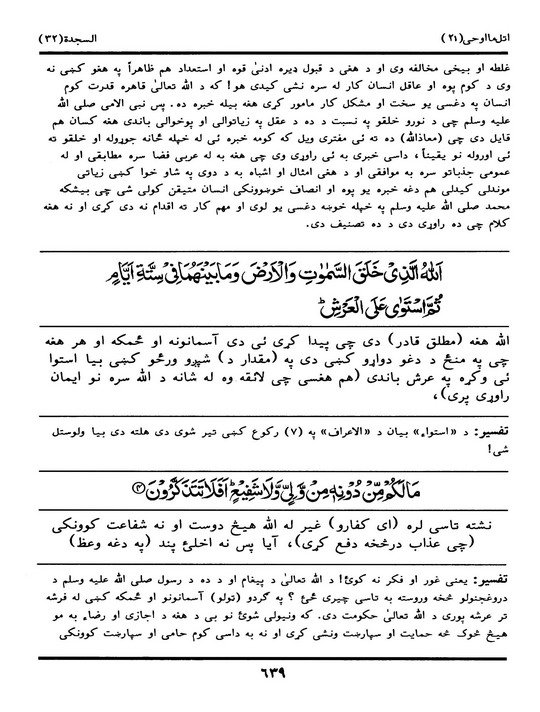 اتل‌مااوحی(۲۱)
السجدة(۳۲)
غلطه او بیخی مخالفه وی او د هغی د قبول ډیره ادنیٰ قوه او استعداد هم ظاهراً په هغو کښی نه
وی د کوم پوه او عاقل انسان کار له سره نشی کیدی هو! که د الله تعالیٰ قاهره قدرت کوم
انسان په دغسی یو سخت او مشکل کار مامور کړی هغه بیله خبره ده. پس نبی الامی صلی الله
علیه وسلم چی د نورو خلقو په نسبت د ده د عقل په زیاتوالی او پوخوالی باندی هغه کسان هم
قایل دی چی (معاذالله) ده ته ئی مفتری ویل که کومه خبره ئی له خپله ځانه جوړوله او خلقو ته
ئی اوروله نو یقیناً، داسی خبری به ئی راوړی وی چی هغه به له عربی فضا سره مطابقی او له
عمومی جذباتو سره به موافقی او د هغی امثال او اشباه به د دوی په شاو خوا کښی زیاتی
موندلی کیدلی هم دغه خبره یو پوه او انصاف خوښوونکی انسان متیقن کولی شی چی بیشکه
محمد صلی الله علیه وسلم په خپله خوښه دغسی یو لوی او مهم کار ته اقدام نه دی کړی او نه هغه
کلام چی ده راوړی دی د ده تصنیف دی.
اَللهُ الَّذِیْ خَلَقَ السَّمٰوٰتِ وَالْاَرْضَ وَمَا بَیْنَهُمَا فِیْ سِتَّةِ اَیَّامٍ
ثُمَّ اسْتَوٰی عَلَی الْعَرْشِ ؕ
الله هغه (مطلق قادر) دی چی پیدا کړی ئی دی آسمانونه او ځمکه او هر هغه
چی په منځ د دغو دواړو کښی دی په (مقدار د) شپږو ورځو کښی بیا استوا
ئی وکړه په عرش باندی (هم هغسی چی لائقه وه له شانه د الله سره نو ایمان
راوړی پری)،
تفسیر: د «استواء» بیان د «الاعراف» په (۷) رکوع کښی تیر شوی دی هلته دی بیا ولوستل
شی!
مَا لَکُمْ مِّنْ دُوْنِهٖ مِنْ وَّلِیٍّ وَّلَا شَفِیْعٍ ؕ اَفَلَا تَتَذَکَّرُوْنَ ۝۴
نشته تاسی لره (ای کفارو) غیر له الله هیڅ دوست او نه شفاعت کوونکی
(چی عذاب درڅخه دفع کړی)، آیا پس نه اخلئ پند (په دغه وعظ)
تفسیر: یعنی غور او فکر نه کوئ! د الله تعالیٰ د پیغام او د ده د رسول صلی الله علیه وسلم د
دروغجنولو څخه وروسته به تاسی چیری ځئ ؟ په ګردو (ټولو) آسمانونو او ځمکه کښی له فرشه
تر عرشه پوری د الله تعالیٰ حکومت دی. که ونیولی شوئ نو بی د هغه د اجازی او رضاء به مو
هیڅ څوک څه حمایت او سپارښت ونشی کړی او نه به داسی کوم حامی او سپارښت کوونکی
۶۳۹